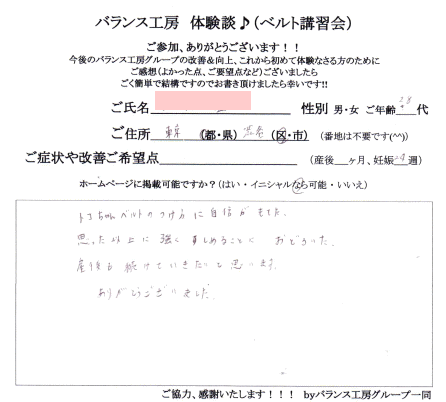 バランス工房 体験談♪（ベルト講習会）
ご参加、ありがとうございます！！
今後のバランス工房グループの改善＆向上、これから初めて体験なさる方のために
ご感想（よかった点、ご要望点など）ございましたら
ごく簡単で結構ですのでお書き頂けましたら幸いです!!
ご氏名 性別 男・女 ご年齢 28 代
ご住所 東京 （都・県） 渋谷 （区・市） （番地は不要です(^^)）
ご症状や改善ご希望点 （産後 ヶ月、妊娠 週）
ホームページに掲載可能ですか？（はい・イニシャルなら可能・いいえ）
トコちゃんベルトのつけ方に自信がもてた。
思った以上に強くすしめることに おどろいた。
産後も続けていきたいと思います。
ありがとうございました。
ご協力、感謝いたします！！！ byバランス工房グループ一同